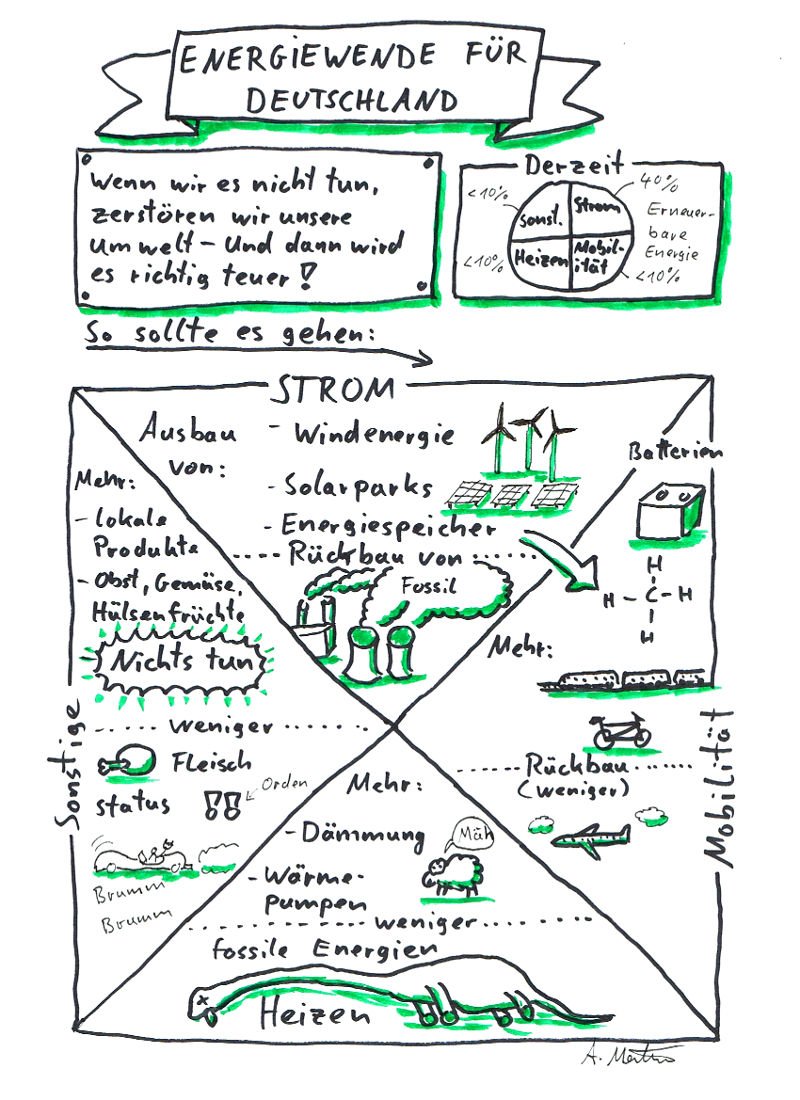 ENERGIEWENDE FÜR
DEUTSCHLAND
Wenn wir es nicht tun,
zerstören wir unsere
Umwelt – Und dann wird
es richtig teuer!
Derzeit
<10%
40%
Sonst.
Strom
Heizen
Mobil-
ität
<10%
<10%
Erneuer-
bare
Energie
So sollte es gehen:
STROM
Ausbau
von:
- Windenergie
- Solarparks
- Energiespeicher
Rückbau von
Fossil
Batterien
H
H - C - H
H
Mehr:
Rückbau
(weniger)
Mobilität
Mehr:
- lokale
Produkte
- Obst, Gemüse,
Hülsenfrüchte
Nichts tun
weniger
Fleisch
status
Orden
Brumm
Brumm
Sonstige
Mehr:
- Dämmung
Mäh
- Wärme-
pumpen
weniger
fossile Energien
Heizen